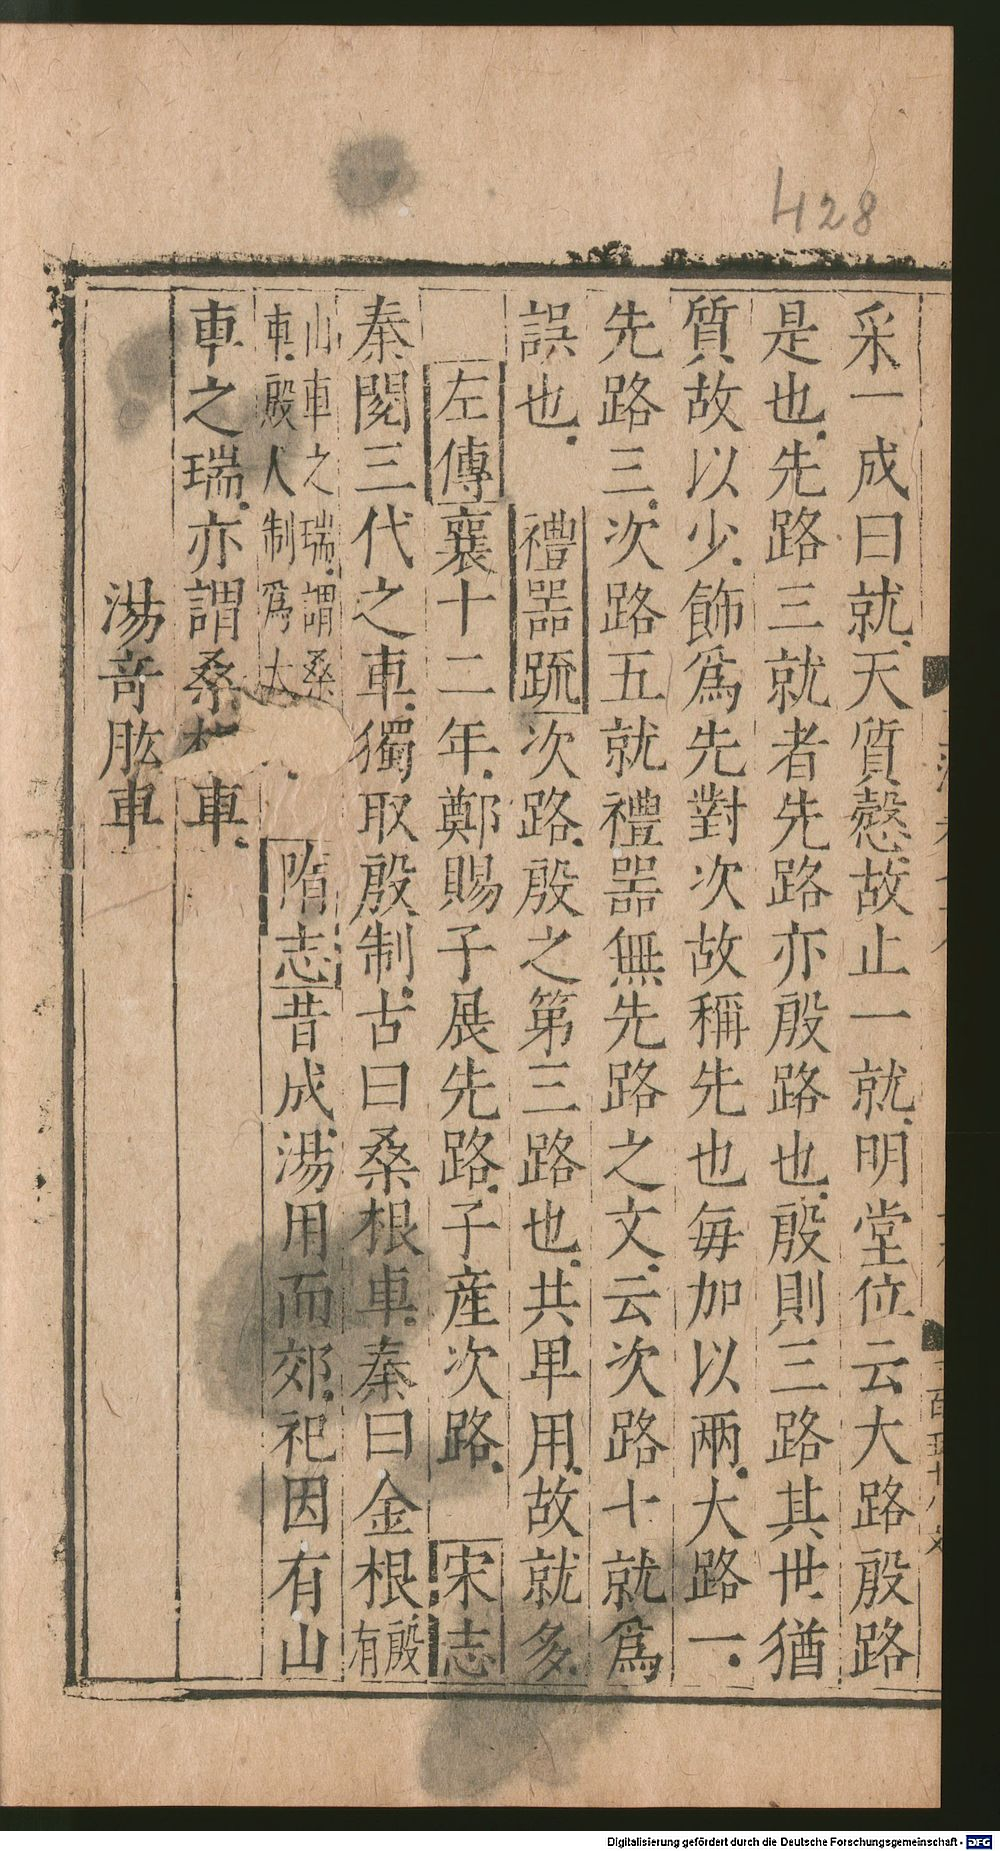 428
采一成曰就天質慤故止一就明堂位云大路殷路
是也先路三就者先路亦殷路也殷則三路其世猶
質故以少飾爲先對次故稱先也每加以兩大路一
先路三次路五就禮器無先路之文云次路十就爲
誤也 禮噐䟽次路殷之第三路也共卑用故就多
左傳襄十二年鄭賜子展先路子産次路 宋志
秦閱三代之車獨取殷制古曰桑根車秦曰金根殷有
山車之瑞謂桑
車殷人制爲大
隋志昔成湯用而郊祀因有山
車之瑞亦謂桑 車
湯竒肱車
Digitalisierung gefördert durch die Deutsche Forschungsgemeinschaft - DFG